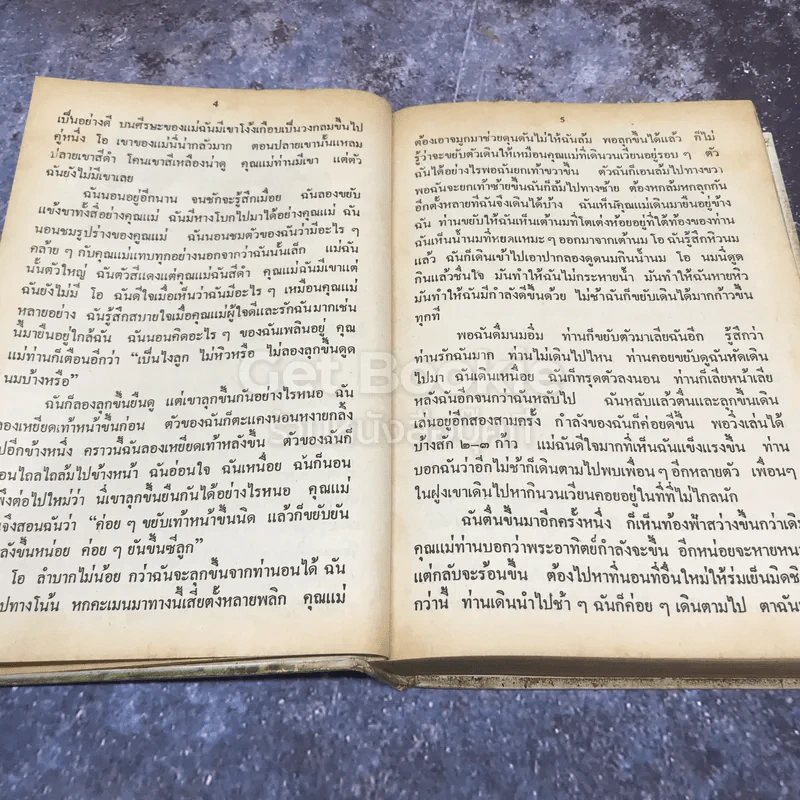 4
เป็นอย่างดี บนศีรษะของแม่ฉันมีเขาโง้งเกือบเป็นวงกลมขึ้นไป
คู่หนึ่ง โอ เขาของแม่นี่น่ากลัวมาก ตอนปลายเขานั้นแหลม
ปลายเขาสีดำ โคนเขาสีเหลืองน่าดู คุณแม่ท่านมีเขา แต่ตัว
ฉันยังไม่มีเขาเลย
ฉันนอนอยู่อีกนาน จนชักจะรู้สึกเมื่อย ฉันลองขยับ
แข้งขาทั้งสี่อย่างคุณแม่ ฉันมีหางโบกไปมาได้อย่างคุณแม่ ฉัน
นอนชมรูปร่างของคุณแม่ ฉันนอนชมตัวของฉันว่ามีอะไร ๆ
คล้าย ๆ กับคุณแม่แทบทุกอย่างนอกจากว่าฉันนั้นเล็ก แม่ฉัน
นั้นตัวใหญ่ ฉันตัวสีแดงแต่คุณแม่ฉันสีดำ คุณแม่ฉันมีเขาแต่
ฉันยังไม่มี โอ ฉันดีใจเมื่อเห็นว่าฉันมีอะไร ๆ เหมือนคุณแม่
หลายอย่าง ฉันรู้สึกสบายใจเมื่อคุณแม่ผู้ใจดีและรักฉันมากเช่น
นี้มายืนอยู่ใกล้ฉัน ฉันนอนคิดอะไร ๆ ของฉันเพลินอยู่ คุณ
แม่ท่านก็เตือนอีกว่า “เป็นไงลูก ไม่หิวหรือ ไม่ลองลุกขึ้นดูด
นมบ้างหรือ”
ฉันก็ลองลุกขึ้นยืนดู แต่เขาลุกขึ้นกันอย่างไรหนอ ฉัน
ลองเหยียดเท้าหน้าขึ้นก่อน ตัวของฉันก็ตะแคงนอนหงายกลิ้ง
ปอีกข้างหนึ่ง คราวนี้ฉันลองเหยียดเท้าหลังขึ้น ตัวของฉันก็
อนไถลไถล้มไปข้างหน้า ฉันอ่อนใจ ฉันเหนื่อย ฉันก็นอน
พึงต่อไปใหม่ว่า นี่เขาลุกขึ้นยืนกันได้อย่างไรหนอ คุณแม่
จึงสอนฉันว่า “ค่อย ๆ ขยับเท้าหน้าขึ้นนิด แล้วก็ขยับยัน
ลังขึ้นหน่อย ค่อย ๆ ยันขึ้นซีลูก”
โอ ลำบากไม่น้อย กว่าฉันจะลุกขึ้นจากท่านอนได้ ฉัน
ปทางโน้น หกคะเมนมาทางนี้เสี่ยตั้งหลายพลิก คุณแม่
5
ต้องเอาจมูกมาช่วยดุนดันไม่ให้ฉันล้ม พอลุกขึ้นได้แล้ว ก็ไม่
รู้ว่าจะขยับตัวเดินให้เหมือนคุณแม่ที่เดินวนเวียนอยู่รอบ ๆ ตัว
ฉันได้อย่างไรพอฉันยกเท้าขวาขึ้น ตัวฉันก็เอนล้มไปทางขวา
พอฉันจะยกเท้าซ้ายขึ้นฉันก็ล้มไปทางซ้าย ต้องหกล้มหกลุกกัน
อีกตั้งหลายทีฉันจึงเดินได้บ้าง ฉันเห็นคุณแม่เดินมายืนอยู่ข้าง
ฉัน ท่านขยับให้ฉันเห็นเต้านมที่โตเต่งห้อยอยู่ที่ใต้ท้องของท่าน
ฉันเห็นน้ำนมที่หยดแหมะ ๆ ออกมาจากเต้านม โอ ฉันรู้สึกหิวนม
แล้ว ฉันก็เดินเข้าไปเอาปากลองดูดนมกินน้ำนม โอ นมนี่ดูด
กินแล้วชื่นใจ มันทำให้ฉันไม่กระหายน้ำ มันทำให้ฉันหายหิว
มันทำให้ฉันมีกำลังดีขึ้นด้วย ไม่ช้าฉันก็ขยับเดินได้มากก้าวขึ้น
ทุกที
พอฉันดื่มนมอิ่ม ท่านก็ขยับตัวมาเลียฉันอีก รู้สึกว่า
ท่านรักฉันมาก ท่านไม่เดินไปไหน ท่านคอยขยับดูฉันหัดเดิน
ไปมา ฉันเดินเหนื่อย ฉันก็ทรุดตัวลงนอน ท่านก็เลียหน้าเลีย
หลังฉันอีกจนกว่าฉันหลับไป ฉันหลับแล้วตื่นและลุกขึ้นเดิน
เล่นอยู่อีกสองสามครั้ง กำลังของฉันก็ค่อยดีขึ้น พอวิ่งเล่นได้
บ้างสัก ๒-๓ ก้าว แม่ฉันดีใจมากที่เห็นฉันแข็งแรงขึ้น ท่าน
บอกฉันว่าอีกไม่ช้าก็เดินตามไปพบเพื่อน ๆ อีกหลายตัว เพื่อนๆ
ในฝูงเขาเดินไปหากินวนเวียนคอยอยู่ในที่ที่ไม่ไกลนัก
ฉันตื่นขึ้นมาอีกครั้งหนึ่ง ก็เห็นท้องฟ้าสว่างขึ้นกว่าเดิม
คุณแม่ท่านบอกว่าพระอาทิตย์กำลังจะขึ้น อีกหน่อยจะหายหน
แต่กลับจะร้อนขึ้น ต้องไปหาที่นอนที่อื่นใหม่ให้ร่มเย็นมิดชิ
กว่านี้ ท่านเดินนำไปช้า ๆ ฉันก็ค่อย ๆ เดินตามไป ตาฉัน
Get Bookie